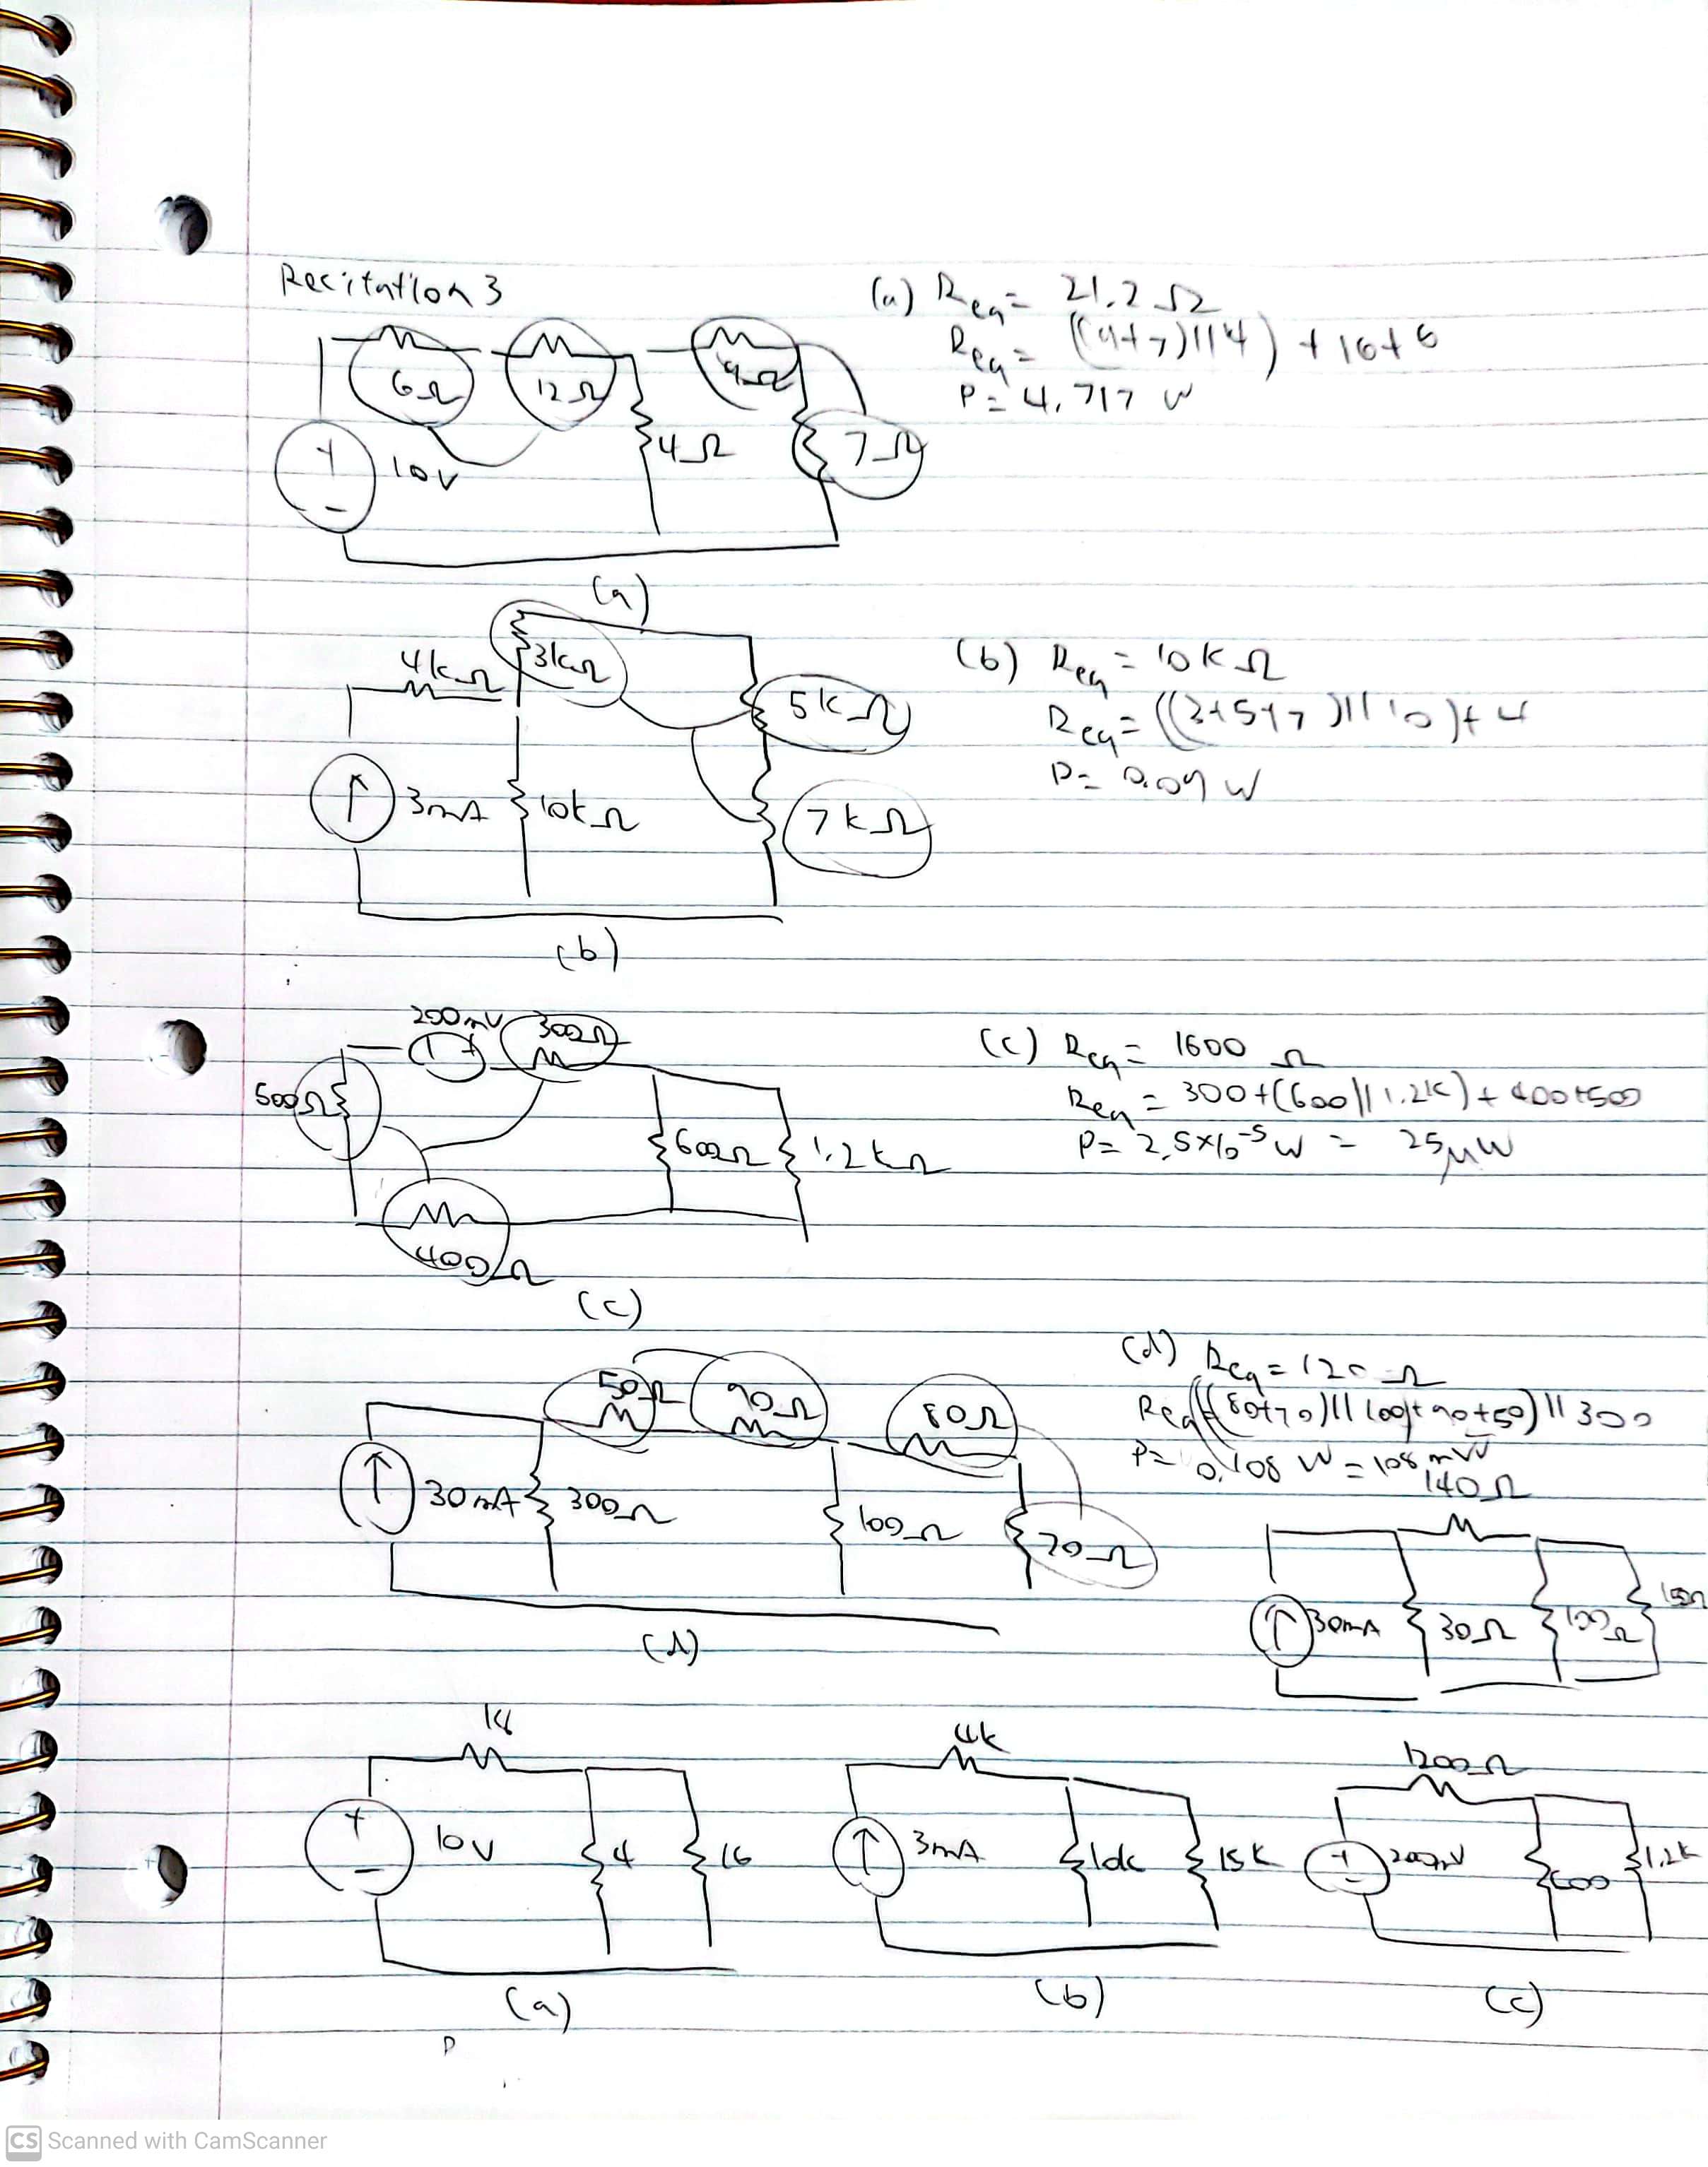 Recitation 3
(a) Req = 21.2 Ω
Req = ((9+7)||4) + 16+6
P = 4.717 W
6Ω 12Ω 9Ω
+ - 10V 4Ω 7Ω
(a)
4kΩ 3kΩ 5kΩ
3mA 10kΩ 7kΩ
(b)
(b) Req = 10kΩ
Req = ((3+5+7)||10)+4
P = 0.09 W
200mV 300Ω
- +
500Ω 600Ω 1.2kΩ
400Ω
(c)
(c) Req = 1600 Ω
Req = 300+(600||1.2k)+400+500
P = 2.5×10⁻⁵ W = 25μW
50Ω 90Ω 80Ω
30mA 300Ω 100Ω 70Ω
(d)
(d) Req = 120 Ω
Req = (((80+70)||100)+90+50)||300
P = 0.108 W = 108 mW
140Ω
30mA 30Ω 100Ω 150Ω
18
+ - 10V 4 16
(a)
4k
3mA 10k 15k
(b)
1200Ω
+ - 200mV 600 1.2k
(c)
P
CS Scanned with CamScanner